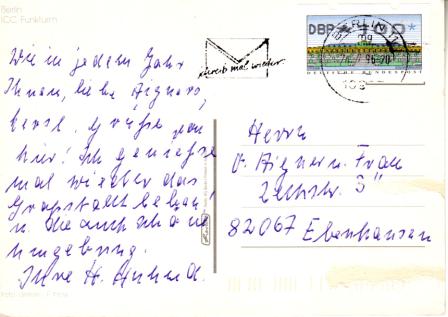 Berlin
ICC Funkturm
Wie in jedem Jahr
Ihnen, liebe Aigners,
herzl. Grüße von
hier! Ich genieße
mal wieder das
Großstadtleben
u. die auch schöne
Umgebung.
Ihre H.
Schreib mal wieder
DBP *100*
DEUTSCHE BUNDESPOST
BERLIN 11
Herrn
V. Aigner u. Frau
82067 Ebenhausen